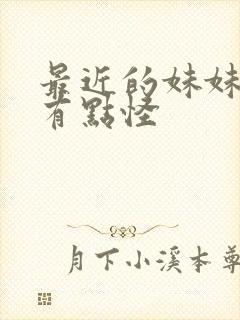 最近的妹妹
有點怪
月下小溪本尊